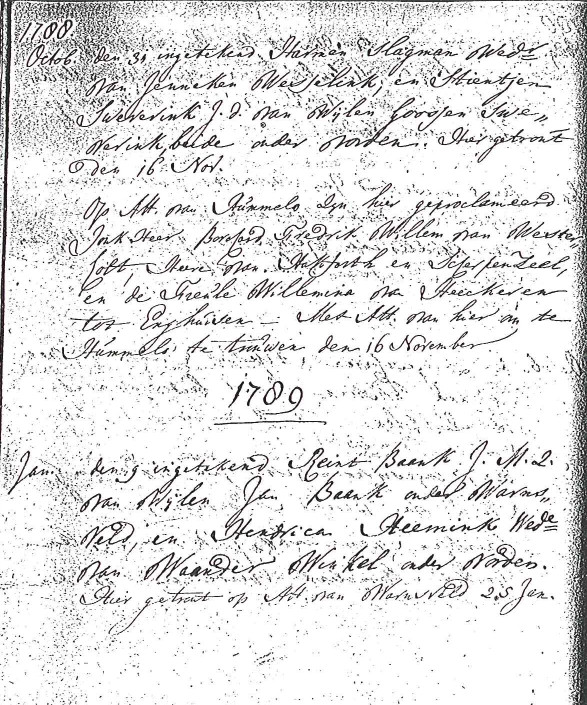 1788
Octob. den 31 ingetekend Harmen Slagman Wedr
van Jenneken Wesselink, en Stientjen
Sweverink J. d. van Wijlen Goossen Swe„
verink, beide onder Vorden. Hier getrout
den 16 Nov.
Op Att. van Hummelo zyn hier geproclameerd
Jonk Heer Borchard Fredrik Willem van Wester,
holt, Heere van Hakforth en
en de Freule Willemina van Heeckeren
tot Enghuisen – Met Att. van hier om te
Hummelo te trouwen den 16 November
1789
Jan. den 9 ingetekend Reint Baank J. M. Z.
van Wijlen Jan Baank onder Warns„
veld, en Hendrica Heemink Wede
van Waander Winkel onder Vorden.
Hier getrout op Att. van Warnsveld 25 Jan.